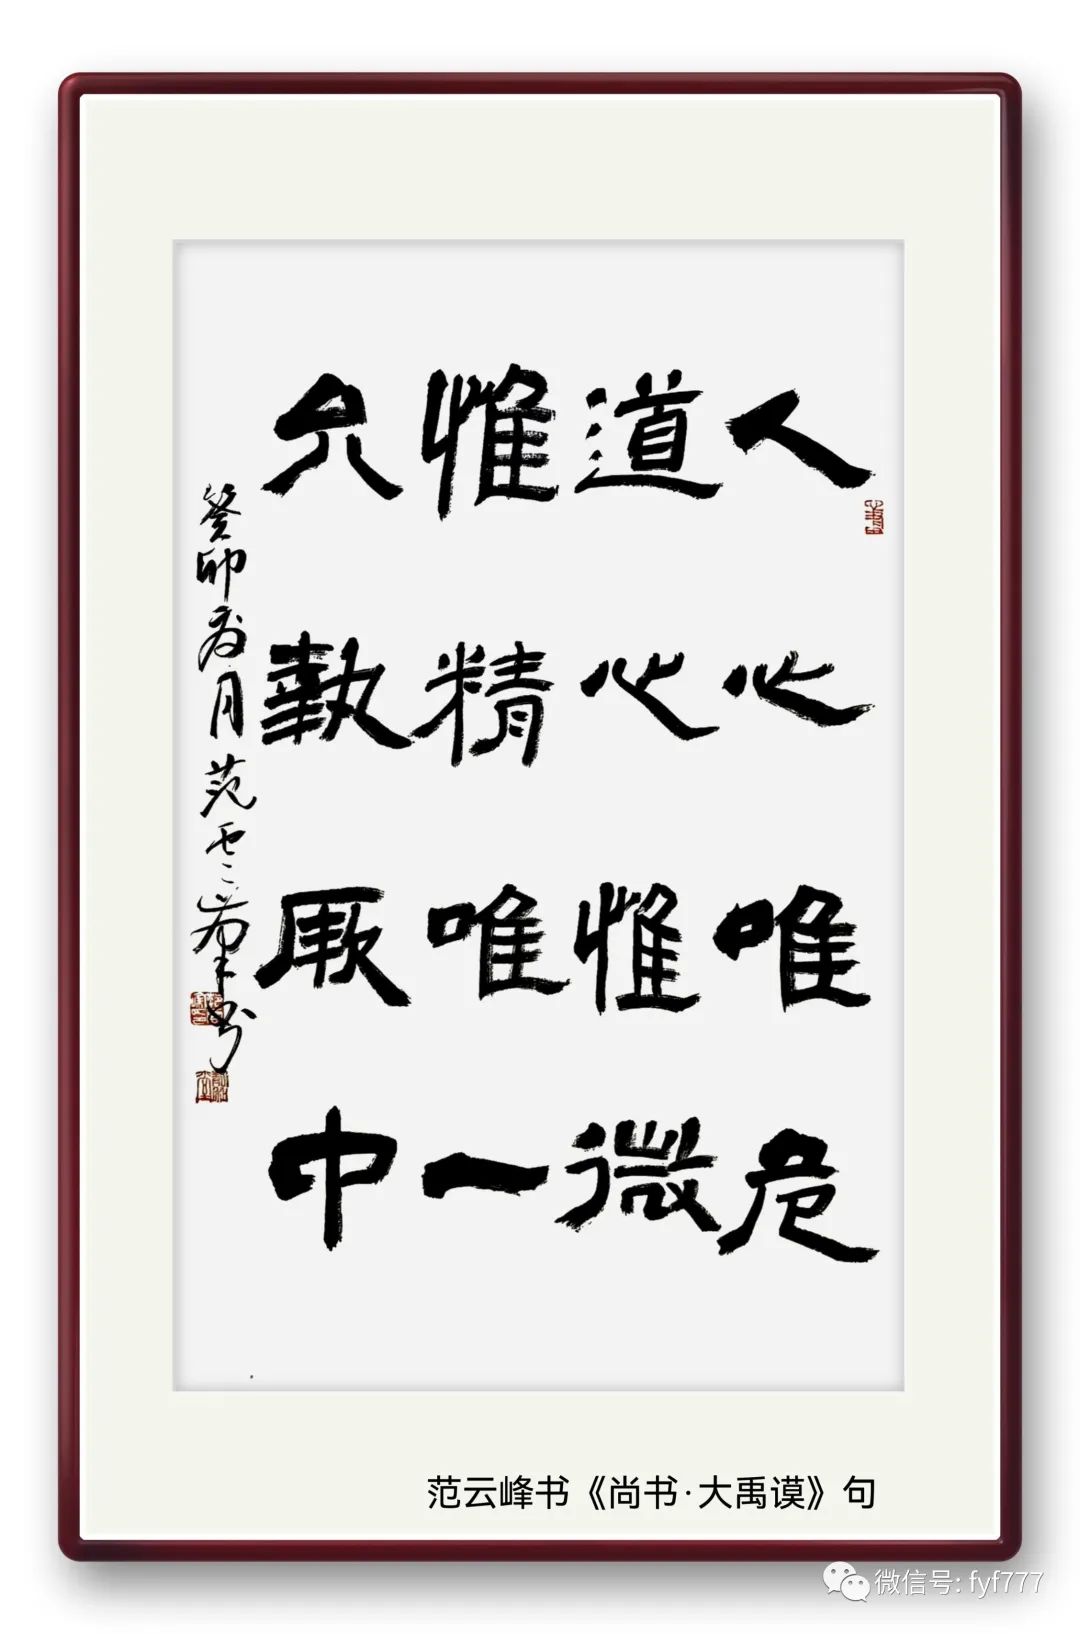 人心唯危
道心惟微
惟精唯一
允執厥中
癸卯荷月范云峰书
范云峰书《尚书·大禹谟》句
微信号: fyf777